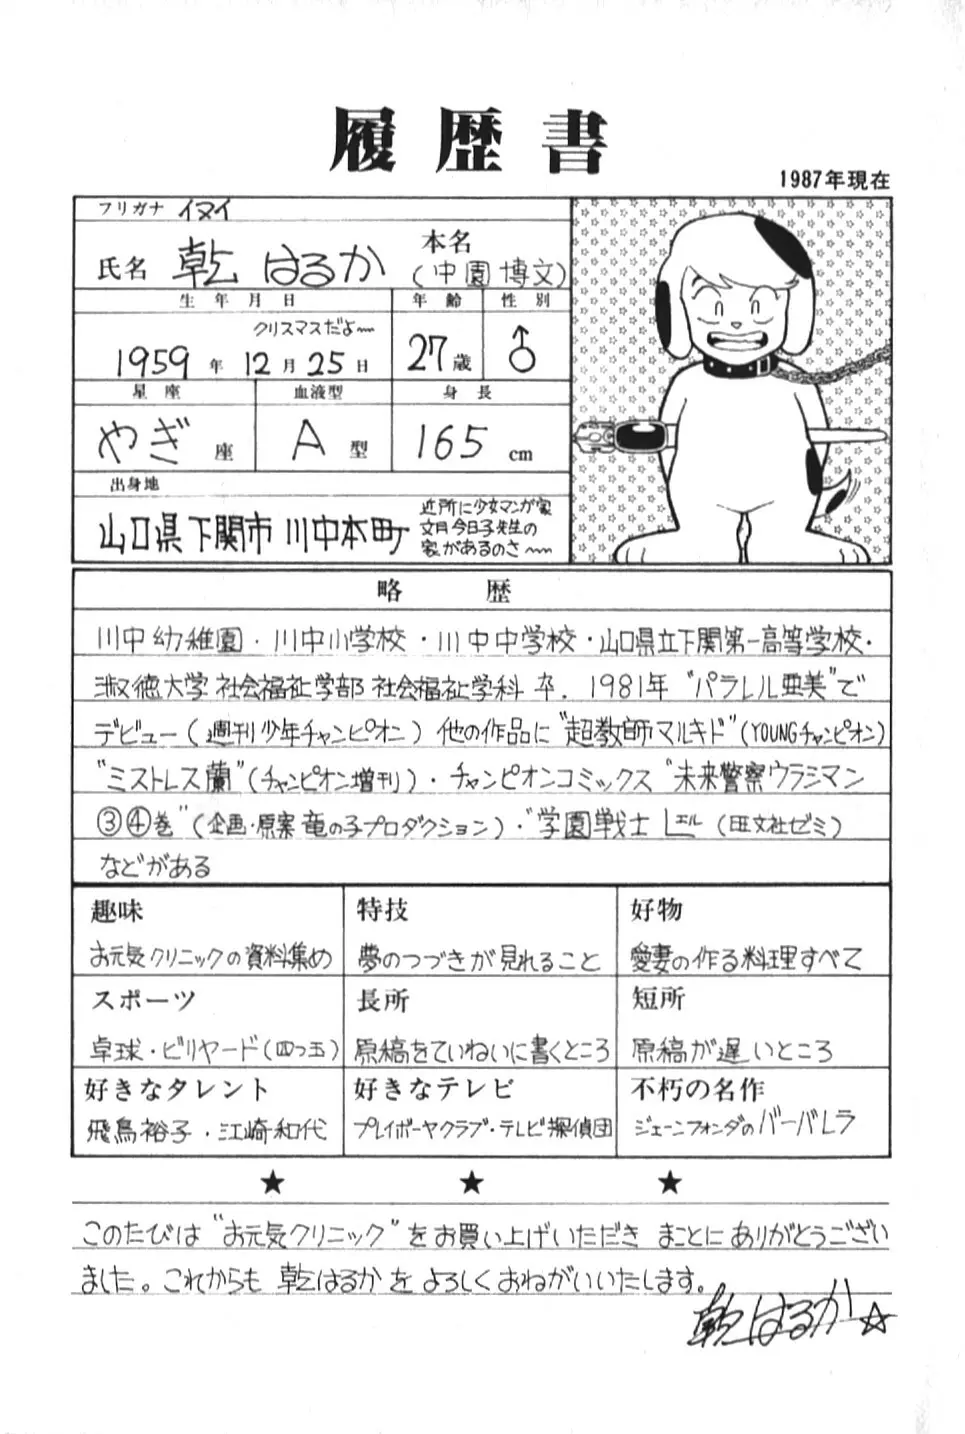 履歴書
1987年現在
フリガナ イヌイ
氏名 乾 はるか 本名 (中園博文)
生年月日 年齢 性別
クリスマスだよ〜
1959年 12月 25日 27歳 ♂
星座 血液型 身長
やぎ座 A型 165cm
出身地
山口県下関市 川中本町
近所に少女マンガ家
文月今日子先生の
家があるのさ〜
略歴
川中幼稚園・川中小学校・川中中学校・山口県立下関第一高等学校・
淑徳大学社会福祉学部社会福祉学科卒．1981年“パラレル亜美”で
デビュー(週刊少年チャンピオン)他の作品に“超教師マルキド”(YOUNGチャンピオン)
“ミストレス蘭”(チャンピオン増刊)・チャンピオンコミックス“未来警察ウラシマン
③④巻”(企画・原案竜の子プロダクション)・“学園戦士L エル(旺文社ゼミ)
などがある
趣味 特技 好物
お元気クリニックの資料集め 夢のつづきが見れること 愛妻の作る料理すべて
スポーツ 長所 短所
卓球・ビリヤード(四つ玉) 原稿をていねいに書くところ 原稿が遅いところ
好きなタレント 好きなテレビ 不朽の名作
飛鳥裕子・江崎和代 プレイボーヤクラブ・テレビ探偵団 ジェーンフォンダのバーバレラ
★ ★ ★
このたびは“お元気クリニック”をお買い上げいただき まことにありがとうござい
ました。これからも 乾はるかをよろしくおねがいいたします。
乾はるか☆